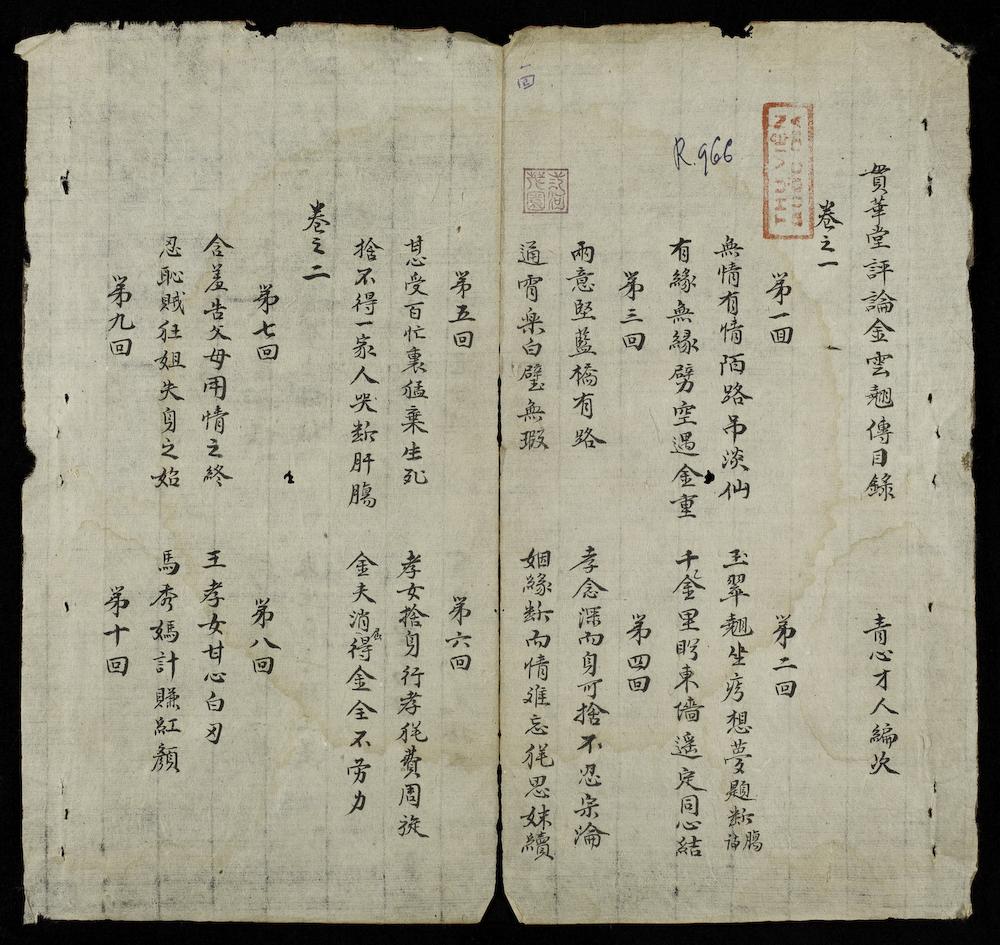 貫華堂評論金雲翹傳目錄 青心才人編次
卷之一
第一回 第二回
無情有情陌路吊淡仙 王翠翹坐痴想夢題断腸詩
有緣無緣劈空遇金重 千金里盻東墻遥定同心結
第三回 第四回
兩意堅藍橋有路 孝念深而身可捨不忍宗淪
通宵樂白璧無瑕 姻緣断而情难忘毡思妹續
第五回 第六回
甚受百忙裏猛棄生死 孝女捨身行孝毡費周旋
捨不得一家人哭断肝膓 金夫消得屈金全不劳力
卷之二
第七回 第八回
含羞告父母用情之終 王孝女甘心白刃
忍恥賊狂姐失身之始 馬秀媽計賺紅顏
第九回 第十回
R.966
一回